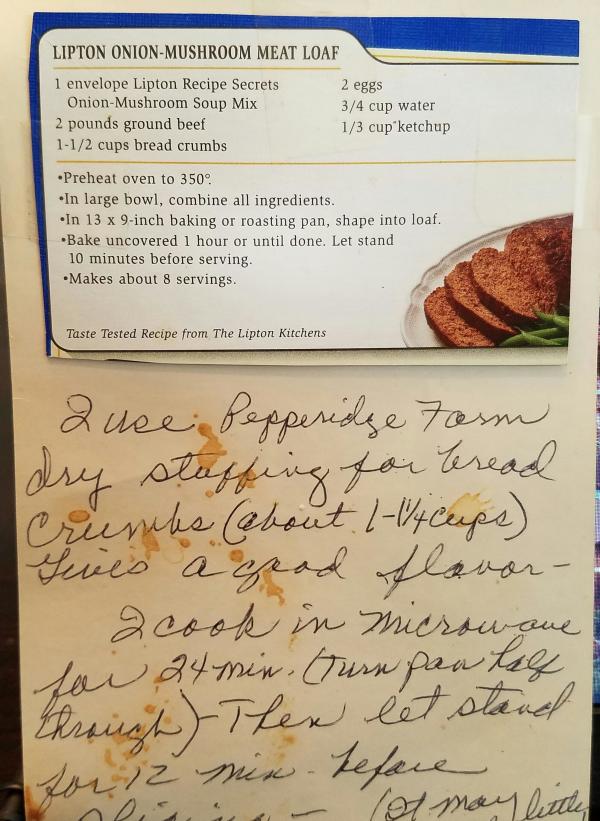 LIPTON ONION-MUSHROOM MEAT LOAF
1 envelope Lipton Recipe Secrets
Onion-Mushroom Soup Mix
2 pounds ground beef
1-1/2 cups bread crumbs
2 eggs
3/4 cup water
1/3 cup ketchup
•Preheat oven to 350°.
•In large bowl, combine all ingredients.
•In 13 x 9-inch baking or roasting pan, shape into loaf.
•Bake uncovered 1 hour or until done. Let stand
10 minutes before serving.
•Makes about 8 servings.
Taste Tested Recipe from The Lipton Kitchens
I use Pepperidge Farm
dry stuffing for bread
crumbs (about 1-1 1/4 cups)
Gives a good flavor-
I cook in microwave
for 24 min. (turn pan half
through) - Then let stand
for 12 min. before
slicing - (It may little